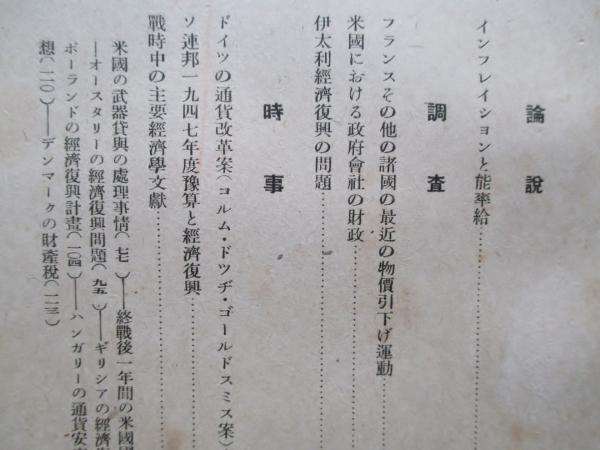 論說
インフレイションと能率給
調査
フランスその他の諸國の最近の物價引下げ運動
米國における政府會社の財政
伊太利經濟復興の問題
時事
ドイツの通貨改革案(コルム・ドツヂ・ゴールドスミス案)
ソ連邦一九四七年度豫算と經濟復興
戰時中の主要經濟學文獻
米國の武器貸與の處理事情(七七)――終戰後一年間の米國
――オースタリーの經濟復興問題(九五)――ギリシアの經濟
ポーランドの經濟復興計畫(一〇四)――ハンガリーの通貨安
想(一二〇)――デンマークの財產稅(一二三)